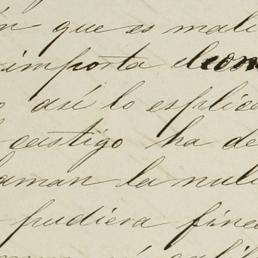 que es mali
importa el con
así lo esplica
castigo ha de
laman la nuli
pudiera finca